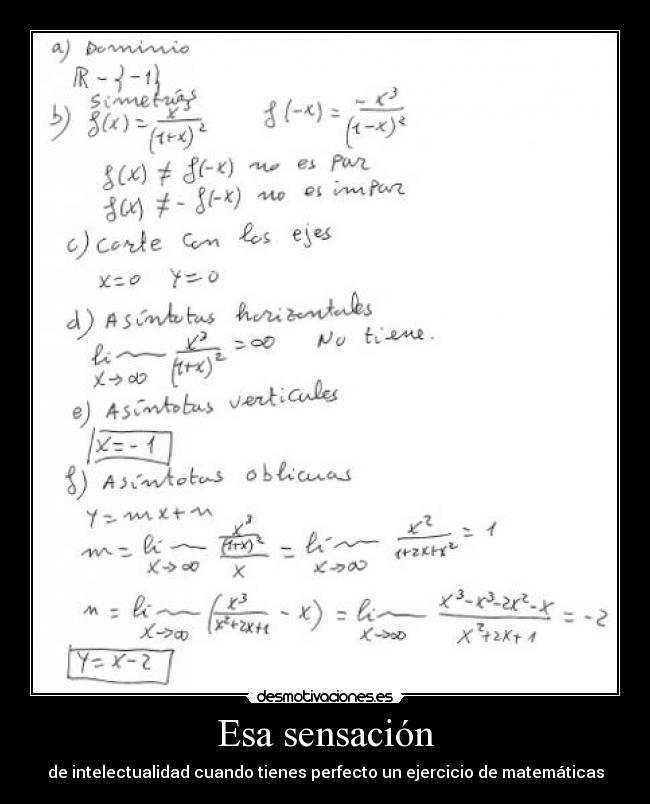 a) Dominio
ℝ - {-1}
Simetrías
b) f(x) = x³/(1+x)² f(-x) = -x³/(1-x)²
f(x) ≠ f(-x) no es par
f(x) ≠ - f(-x) no es impar
c) Corte con los ejes
x=0 y=0
d) Asíntotas horizontales
lim x→∞ x³/(1+x)² = ∞ No tiene.
e) Asíntotas verticales
x=-1
f) Asíntotas oblicuas
y=mx+n
m = lim x→∞ (x³/(1+x)²)/x = lim x→∞ x²/(1+2x+x²) = 1
n = lim x→∞ (x³/(x²+2x+1) - x) = lim x→∞ (x³-x³-2x²-x)/(x²+2x+1) = -2
y=x-2
desmotivaciones.es
Esa sensación
de intelectualidad cuando tienes perfecto un ejercicio de matemáticas